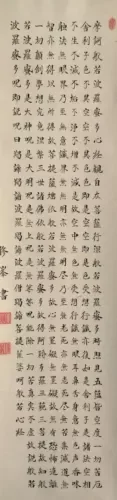 摩訶般若波羅蜜多心經觀自在菩薩行深般若波羅蜜多時照見五蘊皆空度一切苦厄
舍利子色不異空空不異色色即是空空即是色受想行識亦復如是舍利子是諸法空相
不生不滅不垢不淨不增不減是故空中無色無受想行識無眼耳鼻舌身意無色聲香味觸
法無眼界乃至無意識界無無明亦無無明盡乃至無老死亦無老死盡無苦集滅道無
智亦無得以無所得故菩提薩埵依般若波羅蜜多故心無罣礙無罣礙故無有恐怖遠離
一切顛倒夢想究竟涅槃三世諸佛依般若波羅蜜多故得阿耨多羅三藐三菩提故知般
若波羅蜜多是大神咒是大明咒是無上咒是無等等咒能除一切苦真實不虛故說般若
波羅蜜多咒即說咒曰揭諦揭諦波羅揭諦波羅僧揭諦菩提薩婆訶般若心經
書